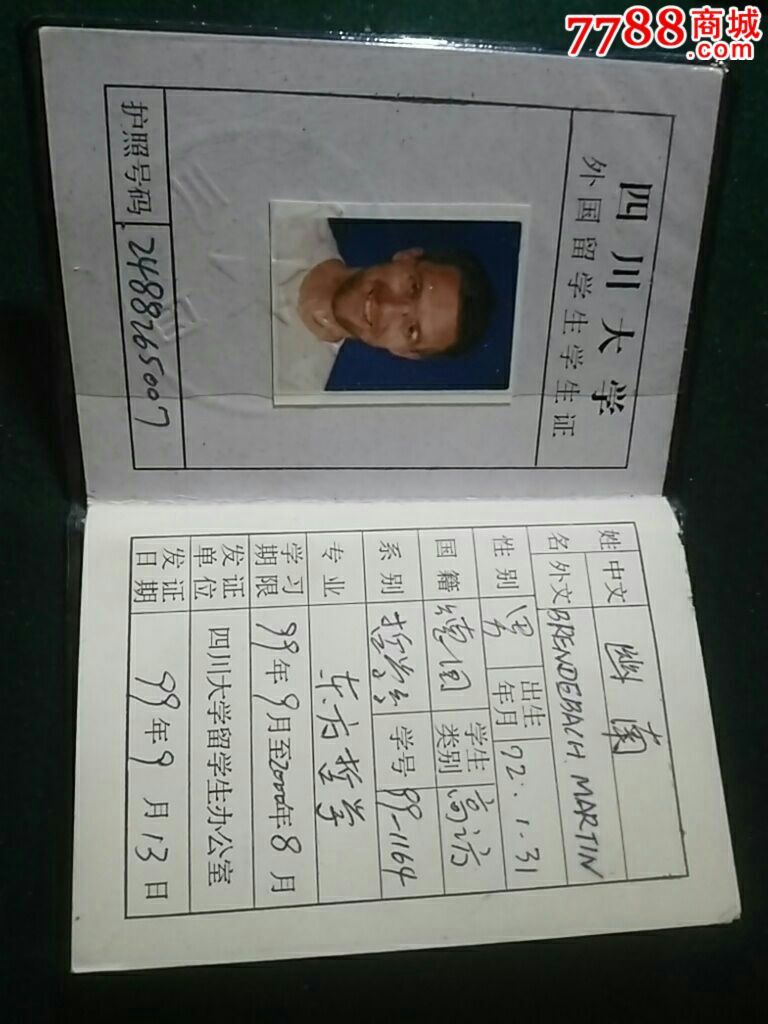 7788商城
.com
四川大学
外国留学生学生证
护照号码 2488265007
姓名 中文 幽兰
外文 BRENDEBACH, MARTIN
性别 男 出生年月 72.1.31
国籍 德国 学生类别 高访
系别 哲学系 学号 99-1164
专业 东方哲学
学习期限 99年9月至2000年8月
发证单位 四川大学留学生办公室
发证日期 99年9月13日